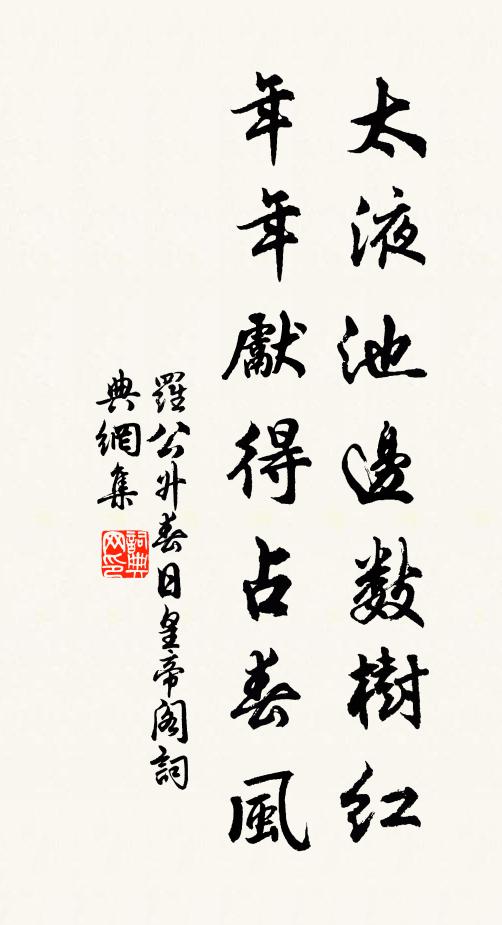 太液池邊數樹紅
年年獻得占春風
羅公升春日皇帝閣詞
典網集
詞典网印